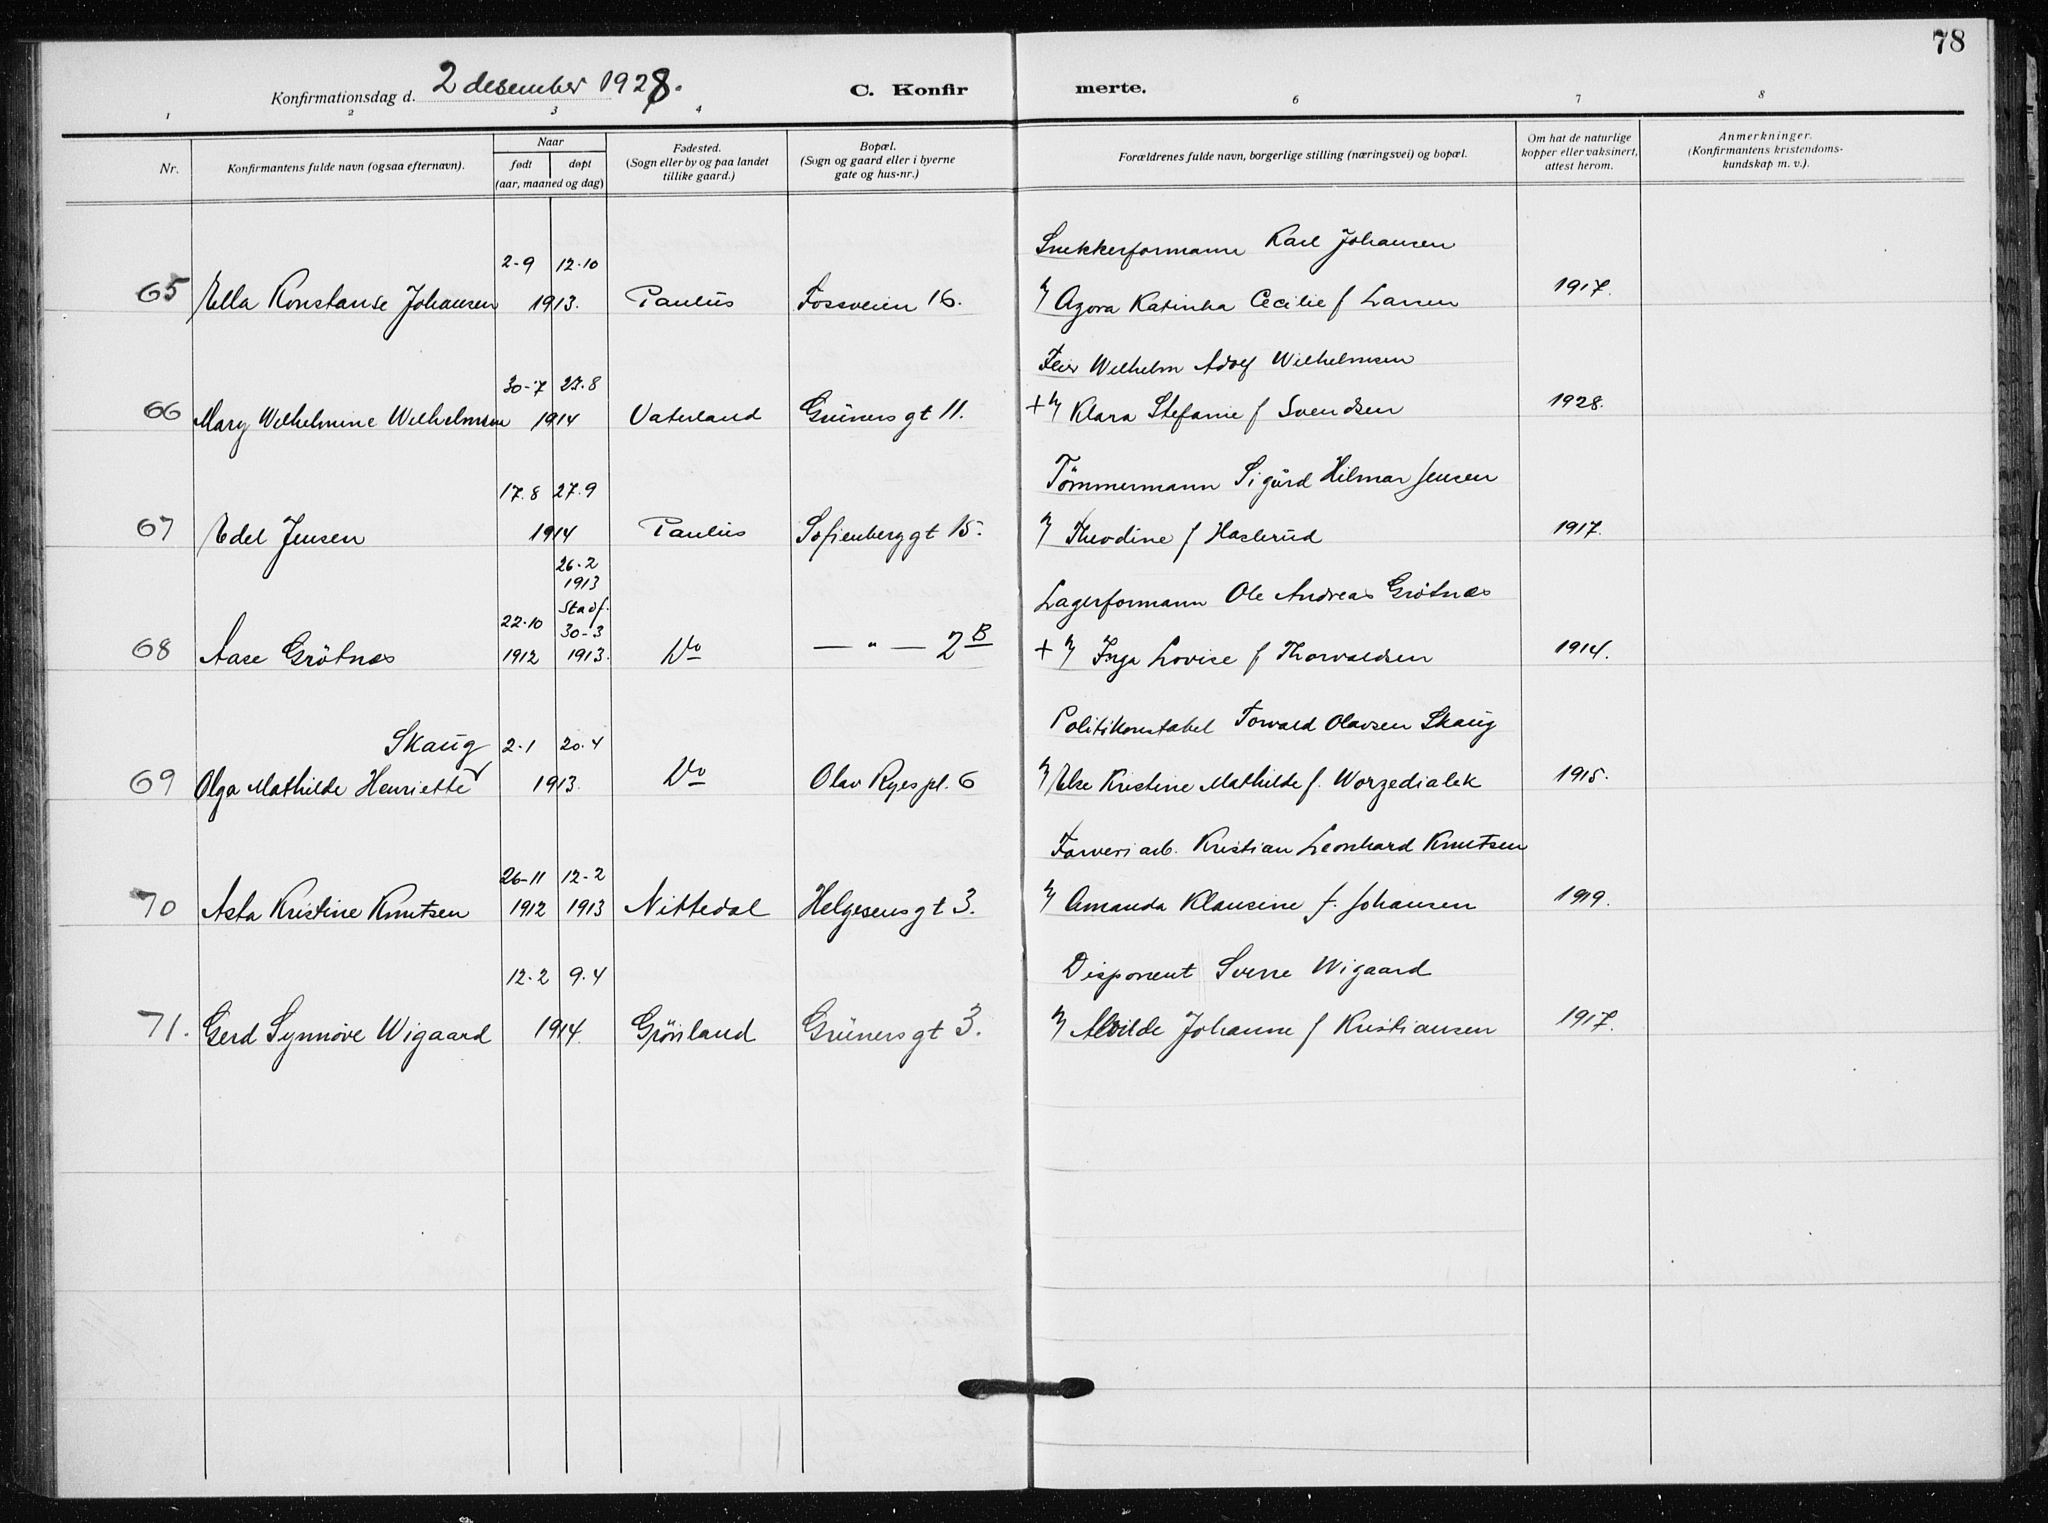 78
Konfirmationsdag d. 2 desember 1928.
C. Konfir merte.
1 2 3 4 6 7 8
Nr.
Konfirmantens fulde navn (ogsaa efternavn).
Naar
født døpt
(aar, maaned og dag)
Fødested.
(Sogn eller by og paa landet
tillike gaard.)
Bopæl.
(Sogn og gaard eller i byerne
gate og hus-nr.)
Forældrenes fulde navn, borgerlige stilling (næringsvei) og bopæl.
Om hat de naturlige
kopper eller vaksinert,
attest herom.
Anmerkninger.
(Konfirmantens kristendoms-
kundskap m. v.).
2-9 12-10 Snekkerformann Karl Johansen
65 Ella Konstanse Johansen 1913. Paulus Fossveien 16. Agora Katinka Cecilie f Larsen 1917.
30-7 27.8 Feier Wilhelm Adolf Wilhelmsen
66 Mary Wilhelmine Wilhelmsen 1914 Vaterland Grüners gt 11. + Klara Stefanie f Svendsen 1928.
17.8 27.9 Tömmermann Sigurd Hilmar Jensen
67 Edel Jensen 1914 Paulus Sofienberggt 15. Theodine f Haslerud 1917.
26-2
1913
Stadf.
22-10 30-3 Lagerformann Ole Andreas Grøtnæs
68 Aase Grötnæs 1912 1913. Do — " — 2 B + Inga Lovise f Thorvaldsen 1914.
Skaug 2-1 20-4 Politikonstabel Torvald Olavsen Skaug
69 Olga Mathilde Henriette 1913. Do Olav Ryes pl. 6 Else Kristine Mathilde f. Worzedialek 1915.
26-11 12-2 Farveriarb. Kristian Leonhard Knutsen
70 Asta Kristine Knutsen 1912 1913 Nittedal Helgesens gt 3. Amanda Klausine f. Johansen 1919.
12-2 9.4 Disponent Sverre Wigaard
71. Gerd Synnøve Wigaard 1914. Grønland Grüners gt 3. Alvilde Johanne f Kristiansen 1917.